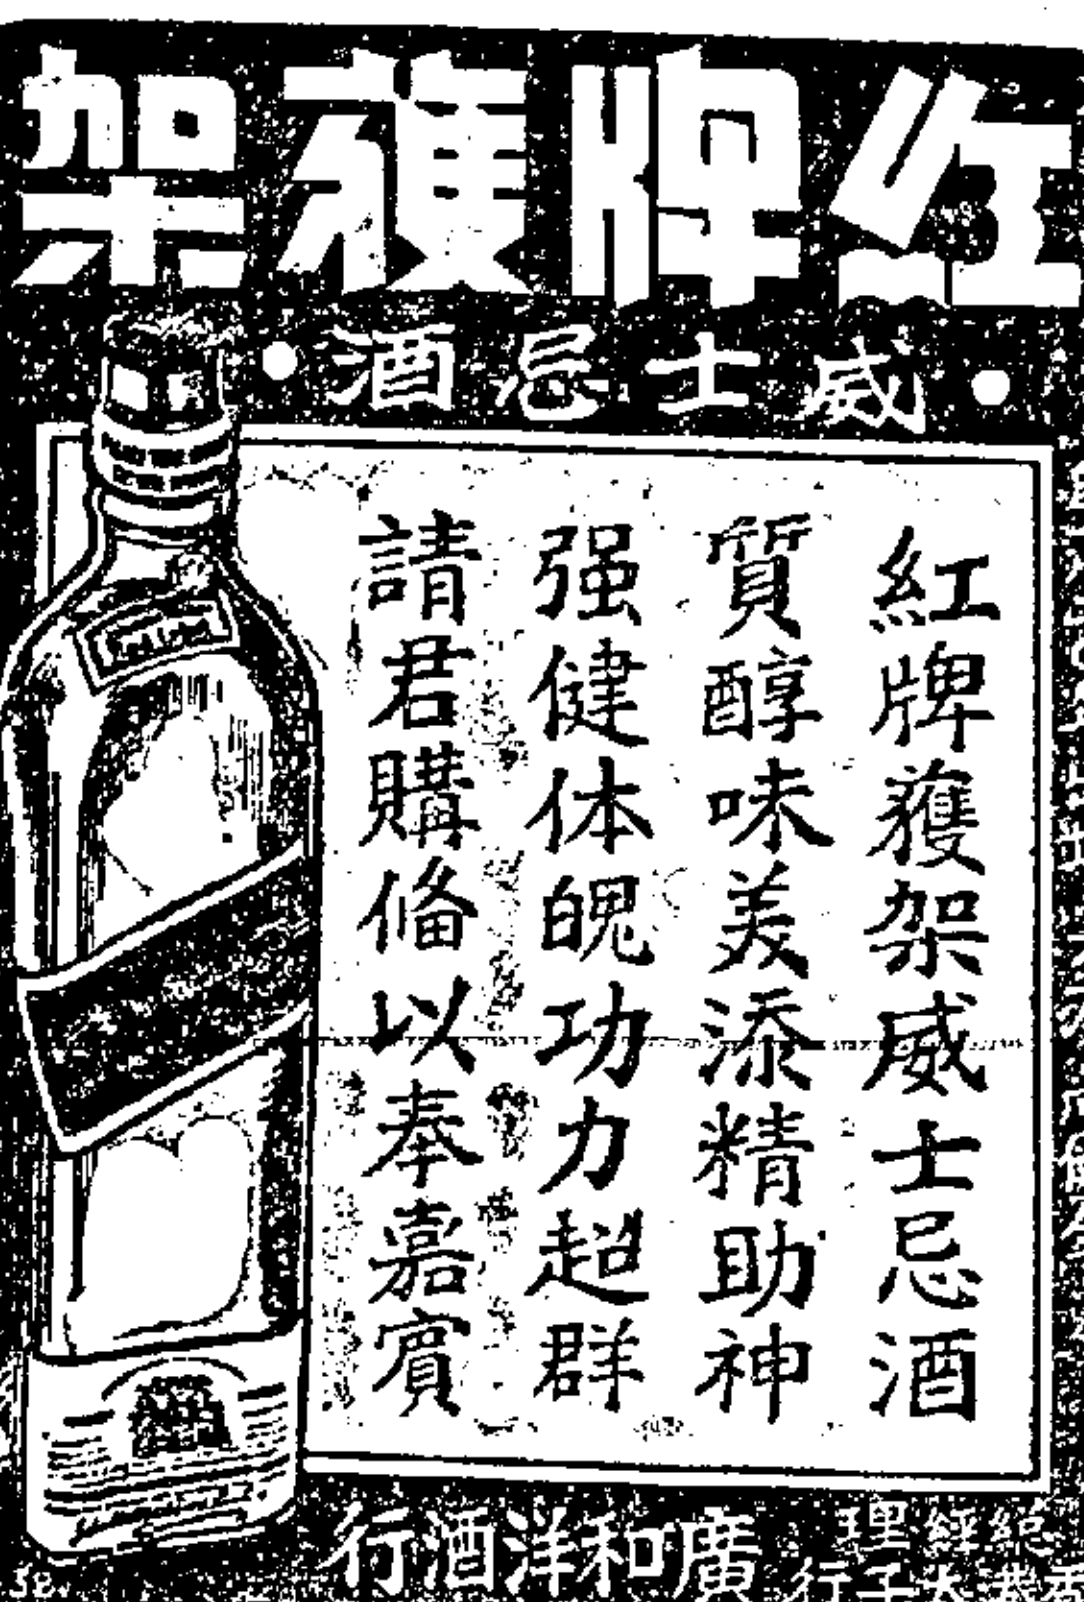 紅牌獲架
・威士忌酒・
紅牌獲架威士忌酒
質醇味美添精助神
强健体魄功力超群
請君購俻以奉嘉賓
Red Label
總經理
廣和洋酒行